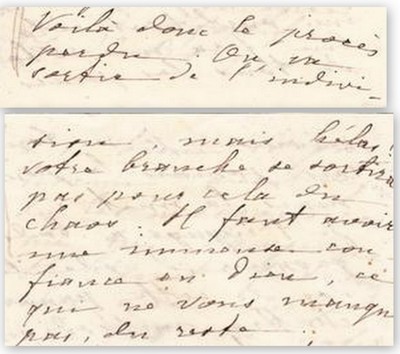 Voilà donc le procès
perdu. On va
sortir de l'indivi-
sion, mais hélas!
votre branche ne sortira
pas pour cela du
chaos. Il faut avoir
une immense con
fiance en Dieu, ce
qui ne vous manque
pas, du reste.